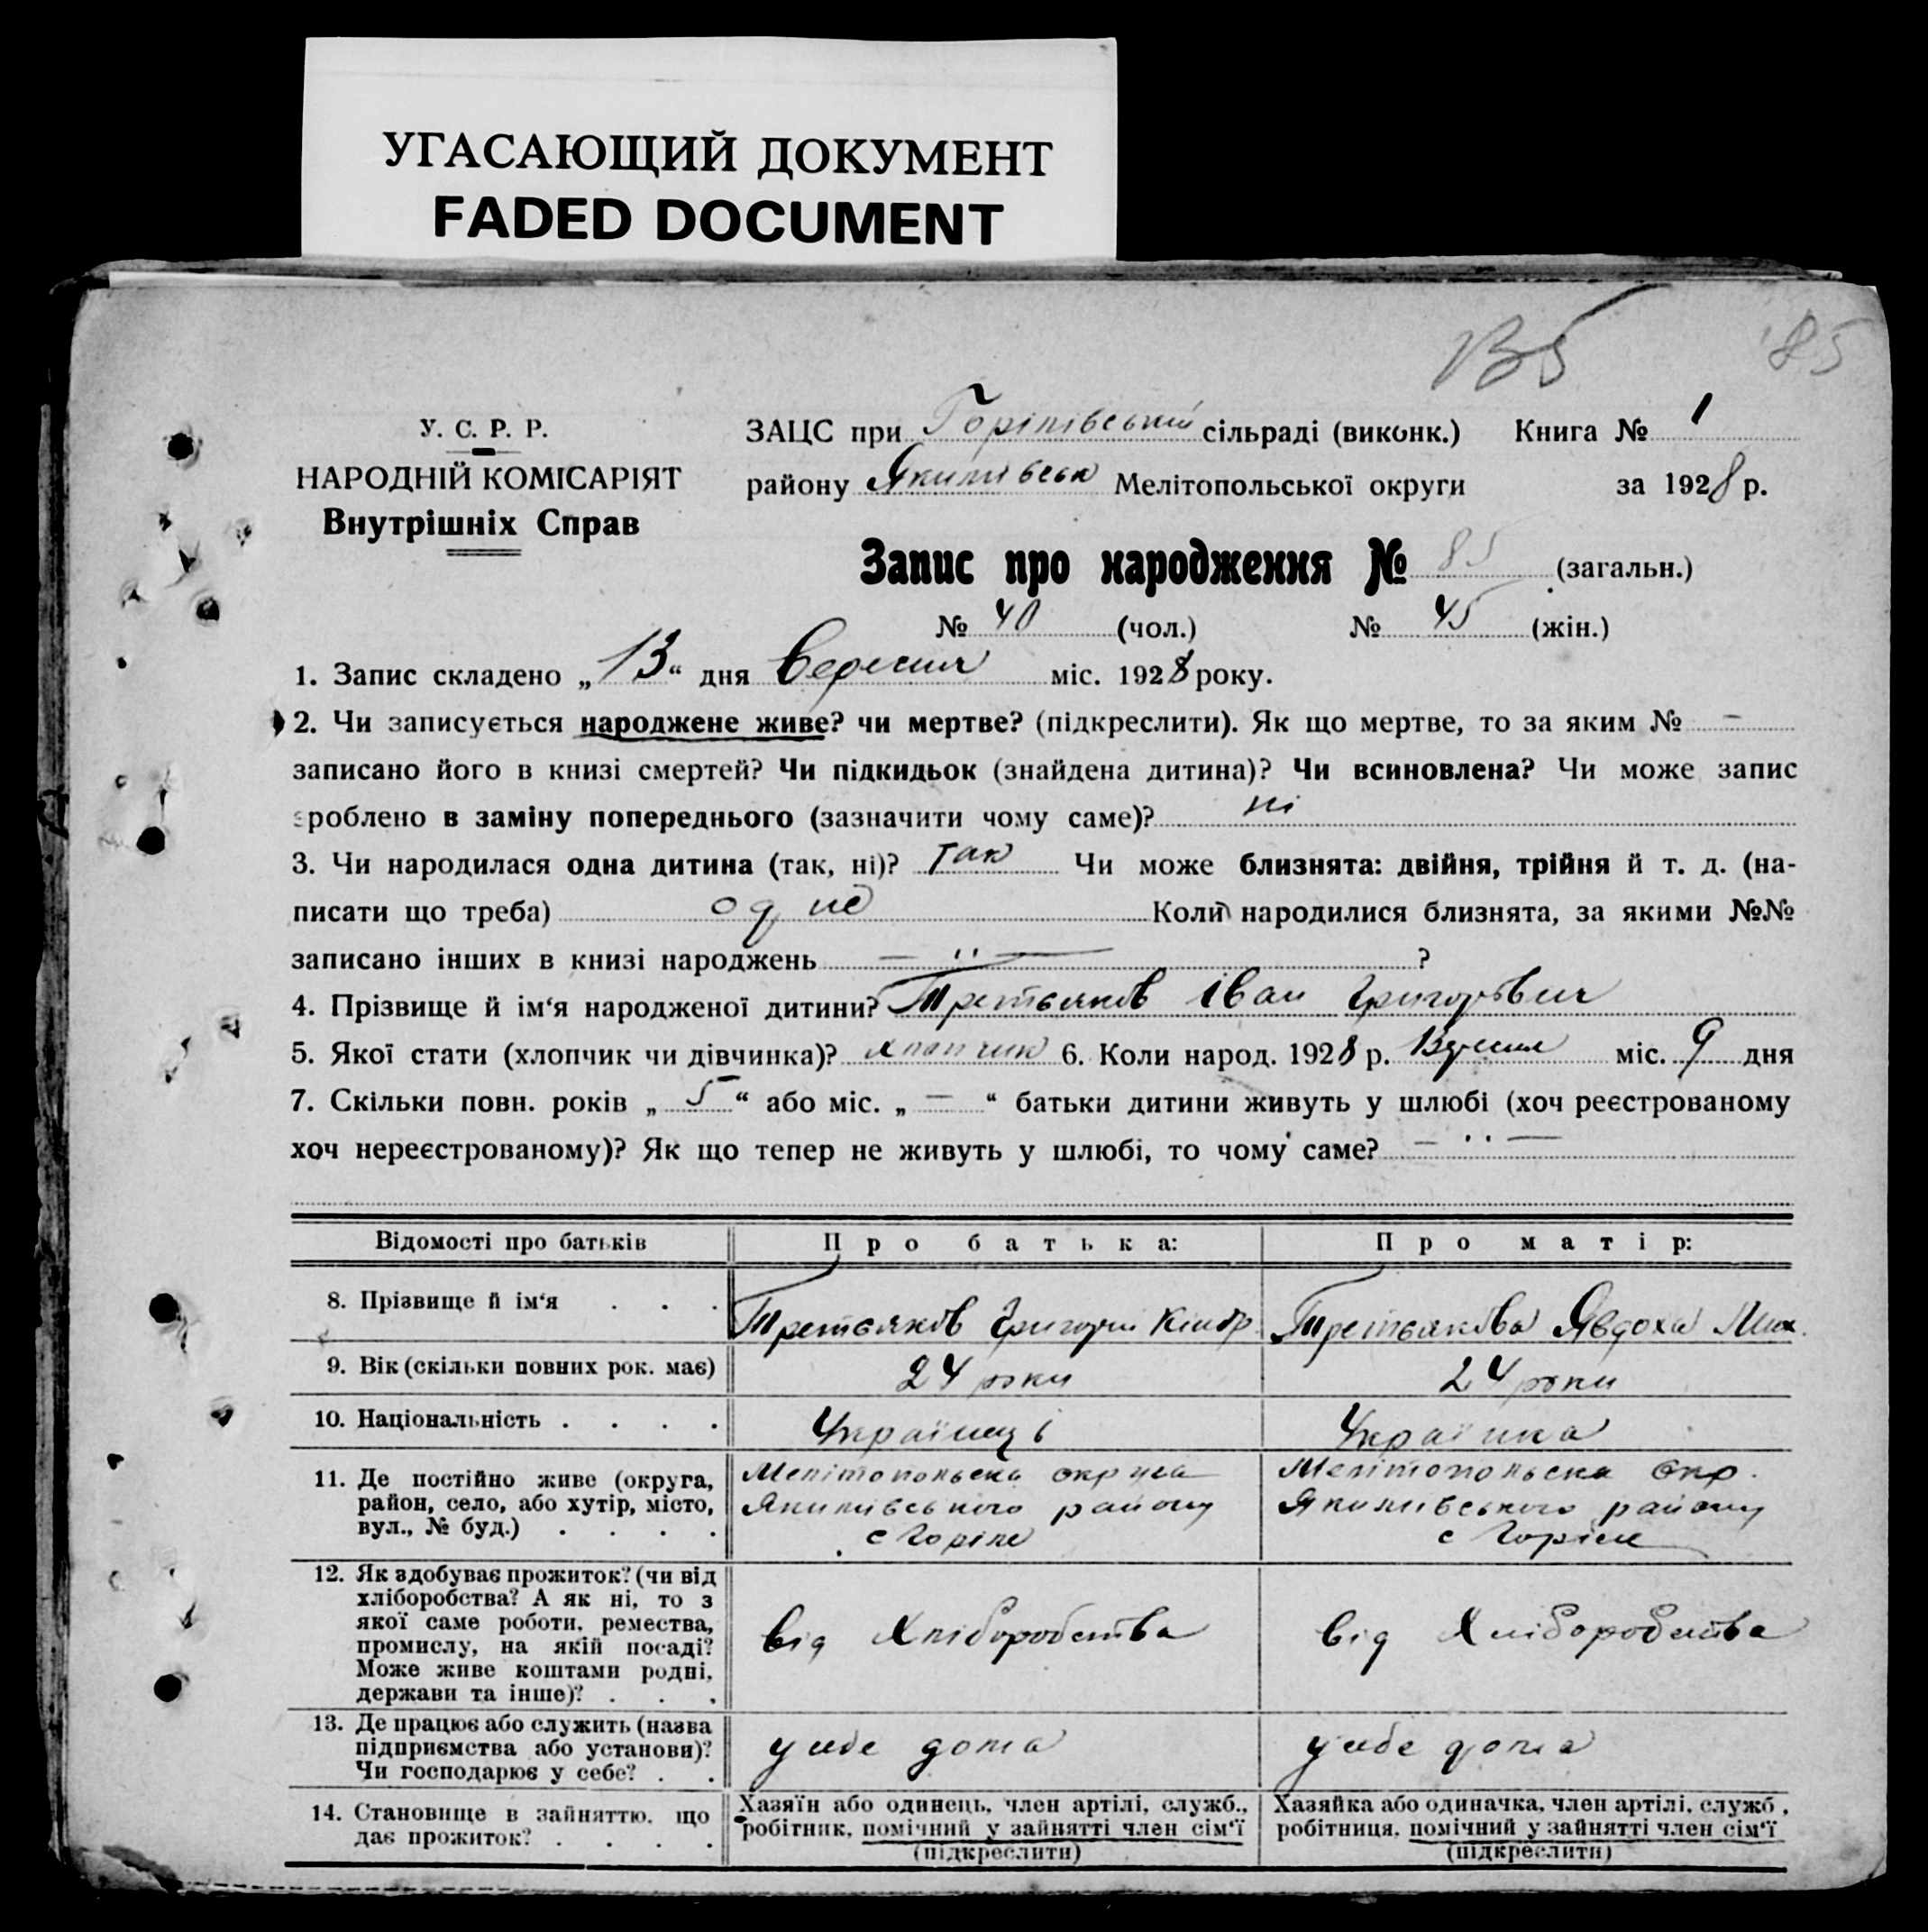 УГАСАЮЩИЙ ДОКУМЕНТ
FADED DOCUMENT
85
У. С. Р. Р.
НАРОДНІЙ КОМІСАРІЯТ
Внутрішніх Справ
ЗАЦС при Горіпівській сільраді (виконк.) Книга № 1
району Якимівськ Мелітопольської округи за 1928 р.
Запис про народження № 85 (загальн.)
№ 40 (чол.) № 45 (жін.)
1. Запис складено „13“ дня Вересня міс. 1928 року.
2. Чи записується народжене живе? чи мертве? (підкреслити). Як що мертве, то за яким № —
записано його в книзі смертей? Чи підкидьок (знайдена дитина)? Чи всиновлена? Чи може запис
зроблено в заміну попереднього (зазначити чому саме)? ні
3. Чи народилася одна дитина (так, ні)? так Чи може близнята: двійня, трійня й т. д. (на-
писати що треба) одне Коли народилися близнята, за якими №№
записано інших в книзі народжень — " — ?
4. Прізвище й ім‘я народженої дитини? Третьяков Іван Григорівич
5. Якої стати (хлопчик чи дівчинка)? хлопчик 6. Коли народ. 1928 р. Вересня міс. 9 дня
7. Скільки повн. років „5“ або міс. „—“ батьки дитини живуть у шлюбі (хоч реєстрованому
хоч нереєстрованому)? Як що тепер не живуть у шлюбі, то чому саме? — " —
Відомості про батьків Про батька: Про матір:
8. Прізвище й ім‘я . . . Третьяков Григорій Кіндр. Третьякова Явдоха Мих.
9. Вік (скільки повних рок. має) 24 роки 24 роки
10. Національність . . . . Українці Українка
11. Де постійно живе (округа,
район, село, або хутір, місто,
вул., № буд.) . . . .
Мелітопольска округа
Якимівського району
с Горіле
Мелітопольска окр.
Якимівського району
с Горіле
12. Як здобуває прожиток? (чи від
хліборобства? А як ні, то з
якої саме роботи, ремества,
промислу, на якій посаді?
Може живе коштами родні,
держави та інше)? . . .
від Хліборобства
від Хліборобства
13. Де працює або служить (назва
підприємства або установи)?
Чи господарює у себе? . .
у себе дома
у себе дома
14. Становище в зайняттю, що
дає прожиток? . . . .
Хазяїн або одинець, член артілі, служб.,
робітник, помічний у зайнятті член сім‘ї
(підкреслити)
Хазяйка або одиначка, член артілі, служб.,
робітниця, помічний у зайнятті член сім‘ї
(підкреслити)